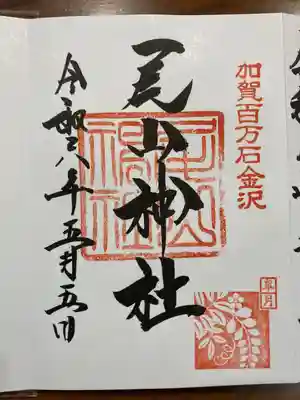 加賀百万石金沢
尾山神社
尾山神社
皐月
令和八年五月五日